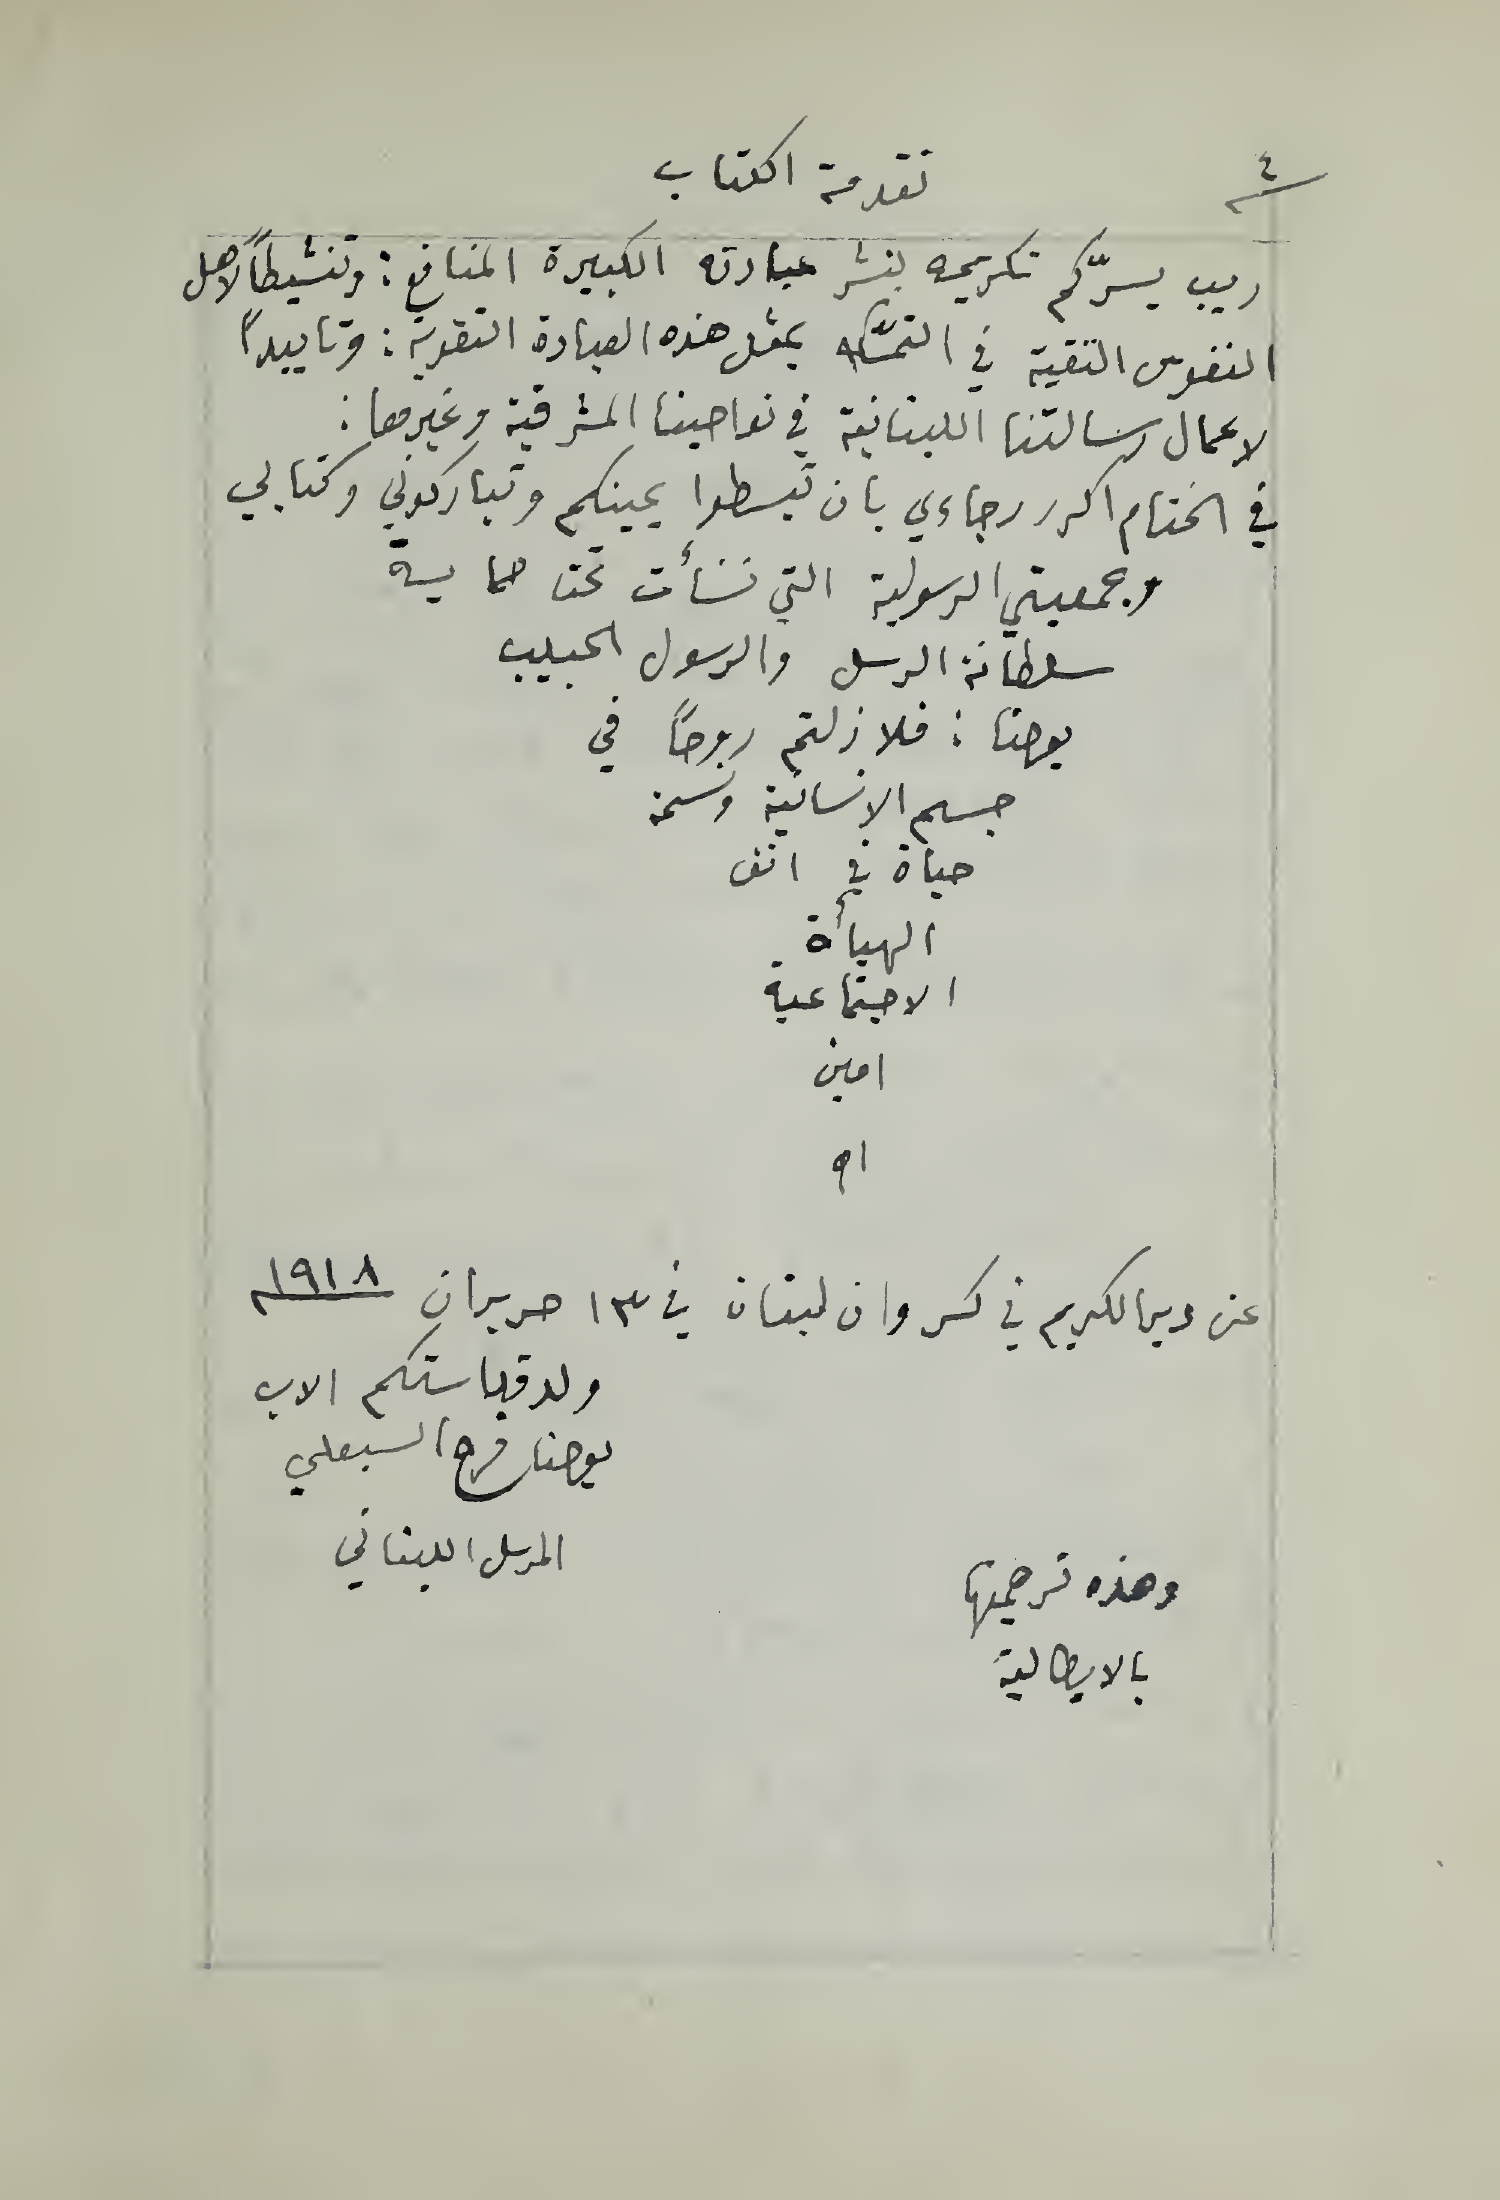 ٤
تقدمة الكتاب
ريب يسرّكم تكريمه بنشر عبادته الكبيرة المنافع : وتنشيطاً لاهل
النفوس التقية في التمسّك بمثل هذه العبادة التقوية : وتاييداً
لاعمال رسالتنا اللبنانية في نواحينا المشرقية وغيرها :
في الختام اكرر رجاءي بان تبسطوا يمينكم وتباركوني وكتابي
وجمعيتي الرسولية التي نشأت تحت حماية
سلطانة الرسل والرسول الحبيب
يوحنا : فلا زلتم روحاً في
جسم الانسانية ونسمة
حياة في انف
الهيأة
الاجتماعية
امين
اه
عن دير الكريم في كسروان لبنان في ١٣ حزيران ١٩١٨
ولد قداستكم الاب
يوحنا فرج السبعلي
المرسل اللبناني
وهذه ترجمتها
بالايطالية